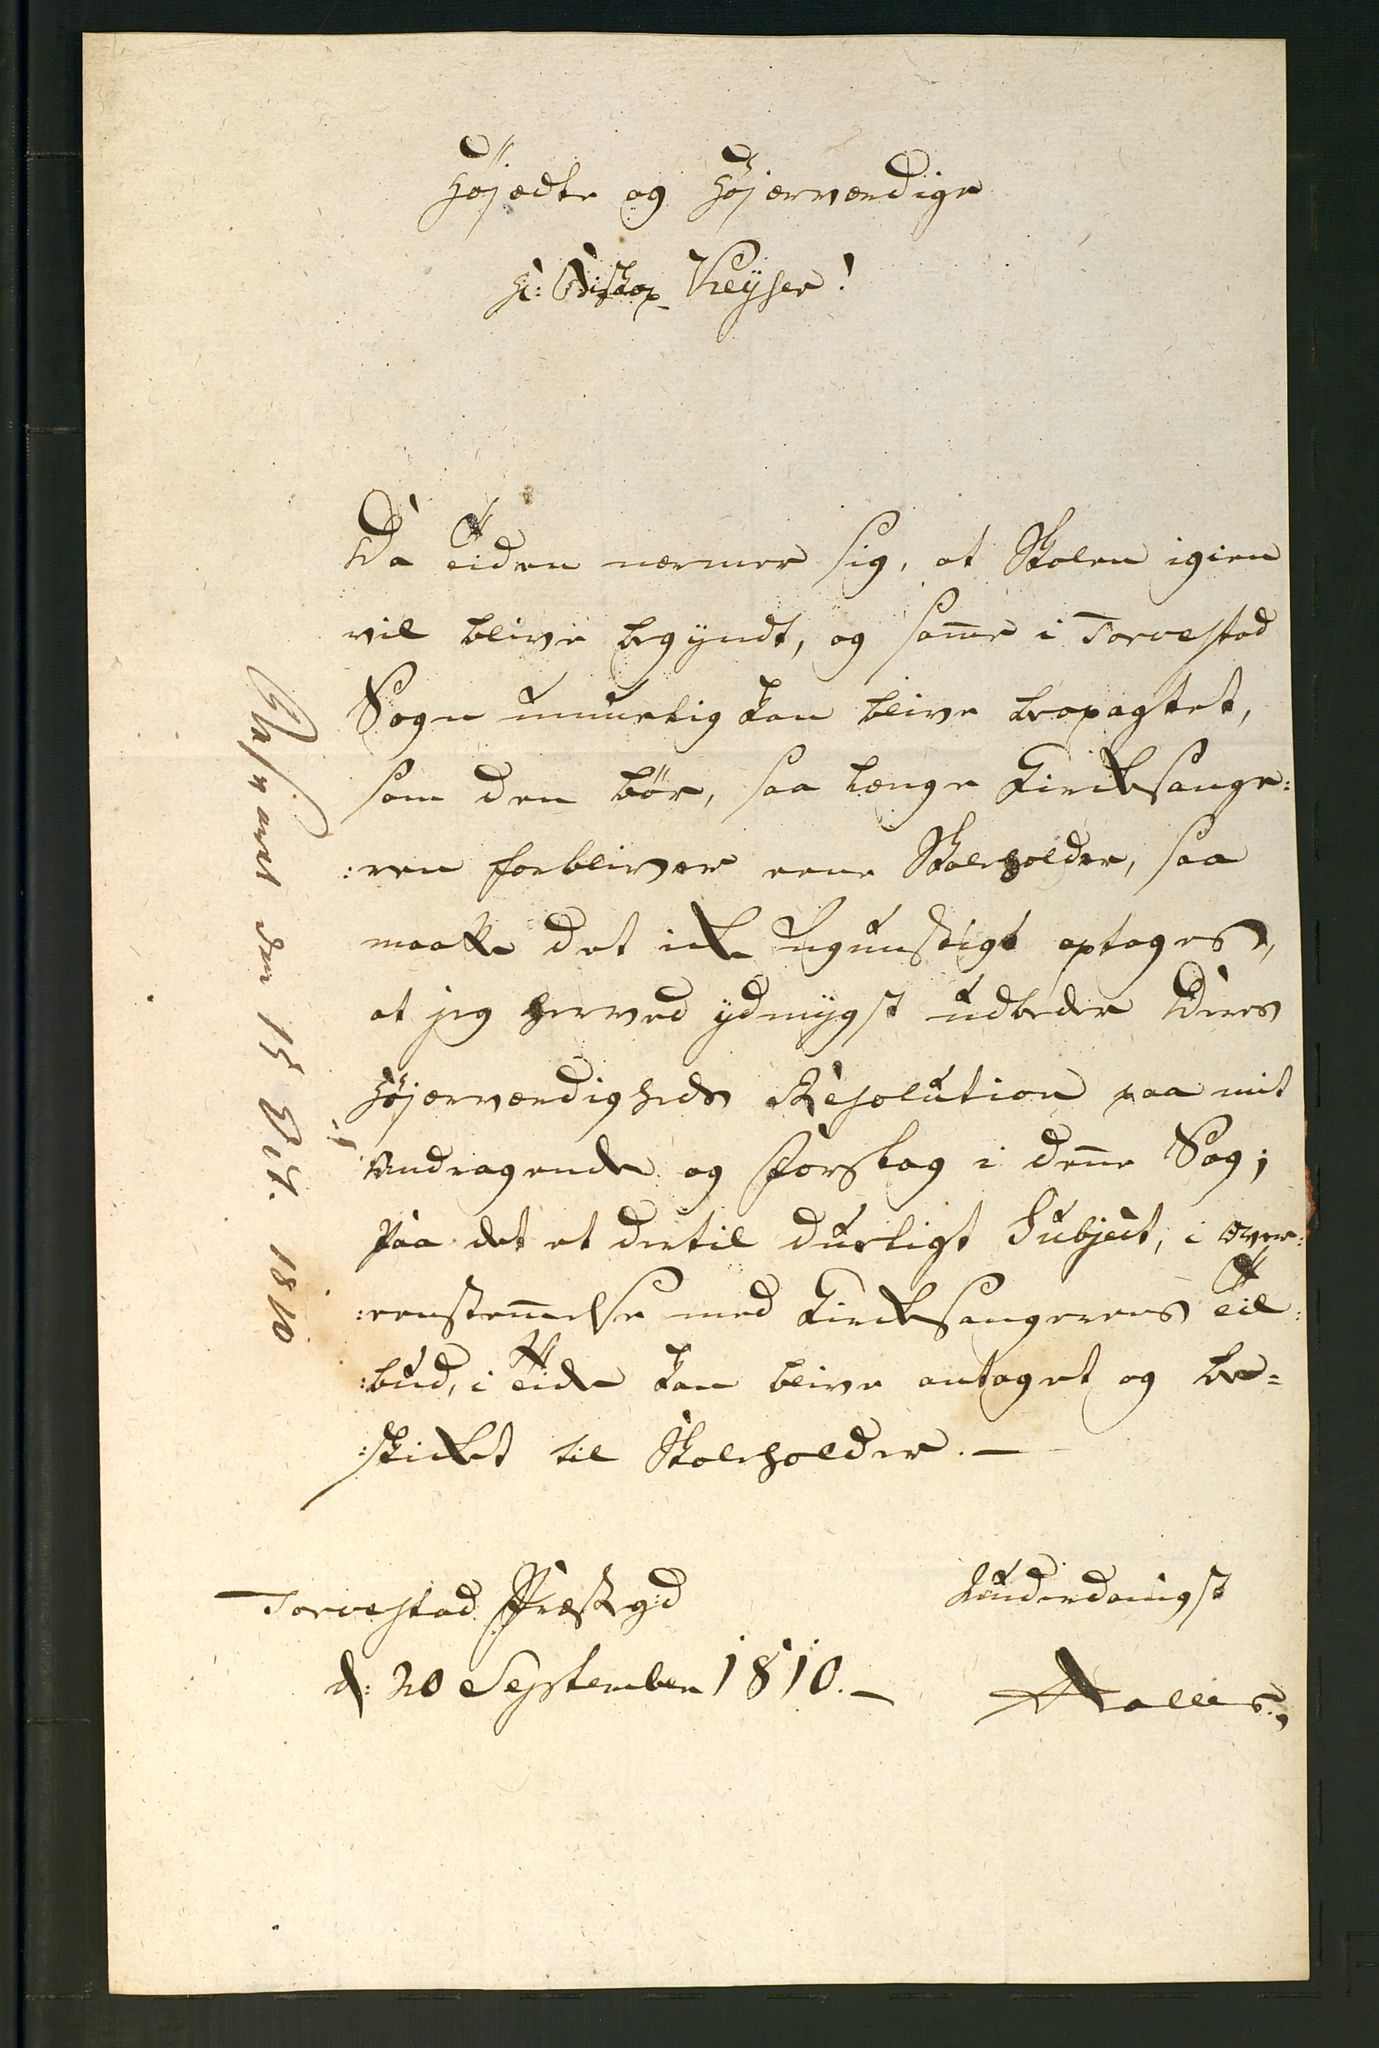 Höjædle og Höjærværdige
Hr: Biskop Keyser!
Da Tiden nærmer sig, at Skolen igien
vil blive begyndt, og samme i Torvestad
Sogn umuelig kan blive beopagtet,
som den bör, saa længe Kirkesange:
:ren forbliver eene Skoleholder, saa
maatte det ikke ugunstigt optages,
at jeg herved ydmygst udbeder Deres
Höjærværdigheds Resolution paa mit
Andragende og Forslag i denne Sag;
Paa det et dertil dueligt Subject, i over:
:eenstemmelse med Kirkesangerens Til:
:bud, i Tide kan blive antaget og be=
:skikket til Skoleholder. —
Torvestad Præstegrd
d: 20 September 1810. —
Underdanigst
den 15 Oct. 1810